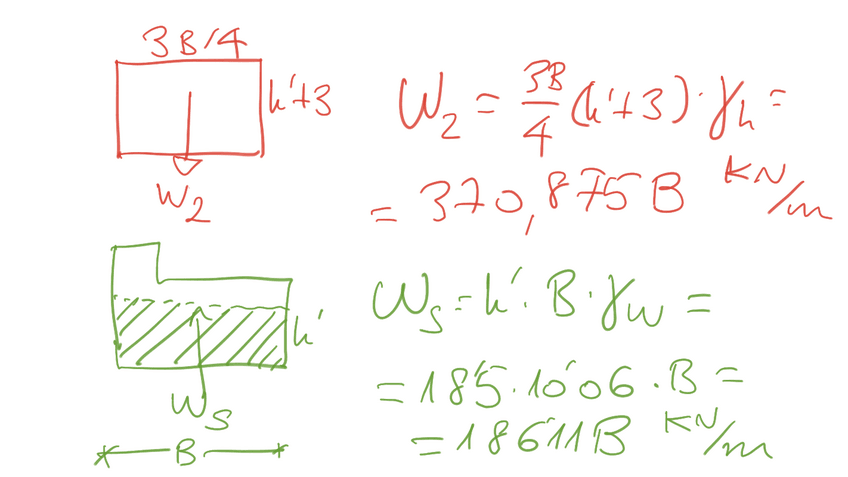 3B/4
h'+3
W₂
W₂ = 3B/4 (h'+3) · γh =
= 370,875 B KN/m
h'
Ws
B
Ws = h' · B · γw =
= 18'5 · 10'06 · B =
= 186'11 B KN/m